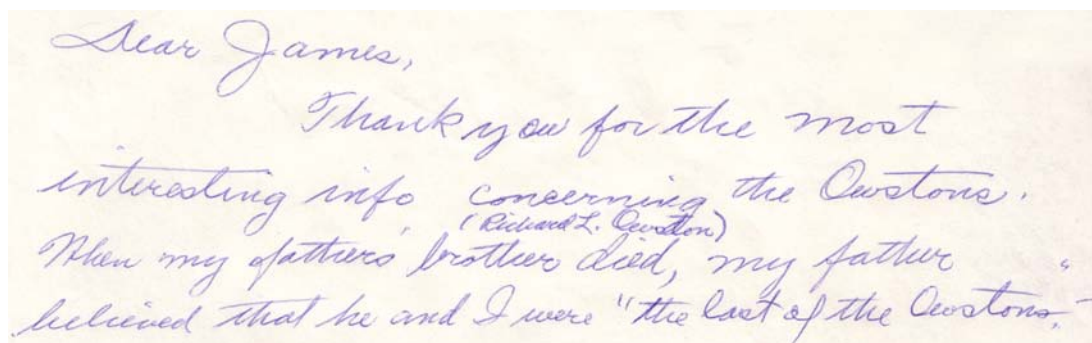 Dear James,
Thank you for the most
interesting info. concerning the Owstons.
(Richard L. Owston)
When my father's brother died, my father
believed that he and I were "the last of the Owstons."